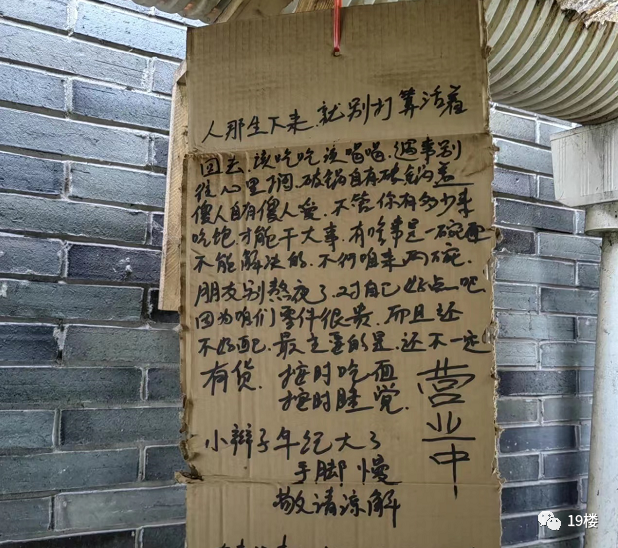 人那生下来.就别打算活着
回去.该吃吃该喝喝.遇事别
往心里搁.破锅自有破锅盖
傻人自有傻人爱.不管你有多少来
吃饱.才能干大事.有啥事是一碗面
不能解决的.不行咱来两碗.
朋友别熬夜了.对自己好点吧
因为咱们零件很贵.而且还
不好配.最主要的是.还不一定
有货.按时吃面
按时睡觉.
营业中
小辫子年纪大了
手脚慢
敬请凉解
19楼